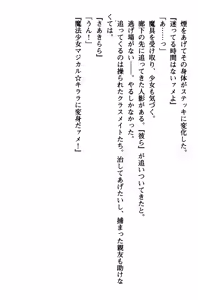 煙をあげてその身体がステッキに変化した。
『迷ってる時間はないァメよ』
「あ……っ」
魔具を受け取り、少女も気づく。
廊下の先に追ってきた人影がある。《彼ら》が追いついてきたと。
逃げ場がない――。やるしかなかった。
追ってくるのは操られたクラスメイトたち。治してあげたいし、捕まった親友も助けな
くては。
『さあきらら』
「うん！」
『魔法少女マジカル☆キララに変身だァメ！』